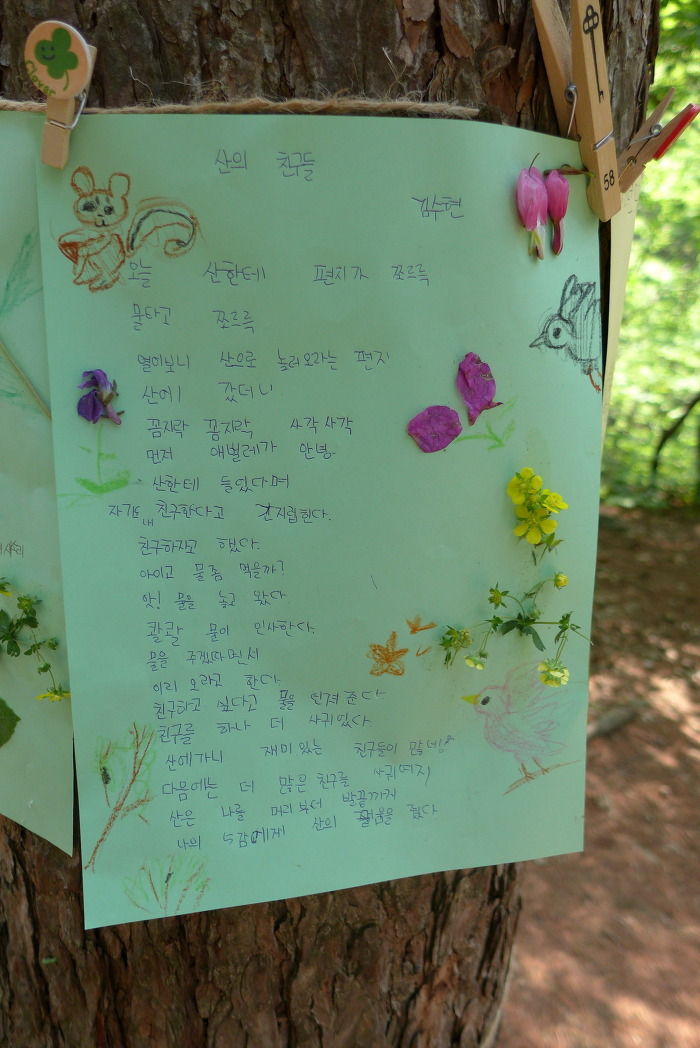 Clover
58
산의 친구들
김수현
오늘 산한테 편지가 쪼르륵
물타고 쪼르륵
열어보니 산으로 놀러오라는 편지
산에 갔더니
꼼지락 꼼지락 사각사각
먼저 애벌레가 안녕
산한테 들었다며
자기도 내 친구한다고 간지럽힌다.
친구하자고 했다.
아이고 물좀 먹을까?
앗! 물을 놓고 왔다
콸콸 물이 인사한다.
물을 주겠다면서
이리 오라고 한다.
친구하고 싶다고 물을 던져 준다
친구를 하나 더 사귀었다
산에가니 재미있는 친구들이 많네!
다음에는 더 많은 친구를 사귀여지
산은 나를 머리부터 발끝까지
나의 5감에게 산의 을 줬다